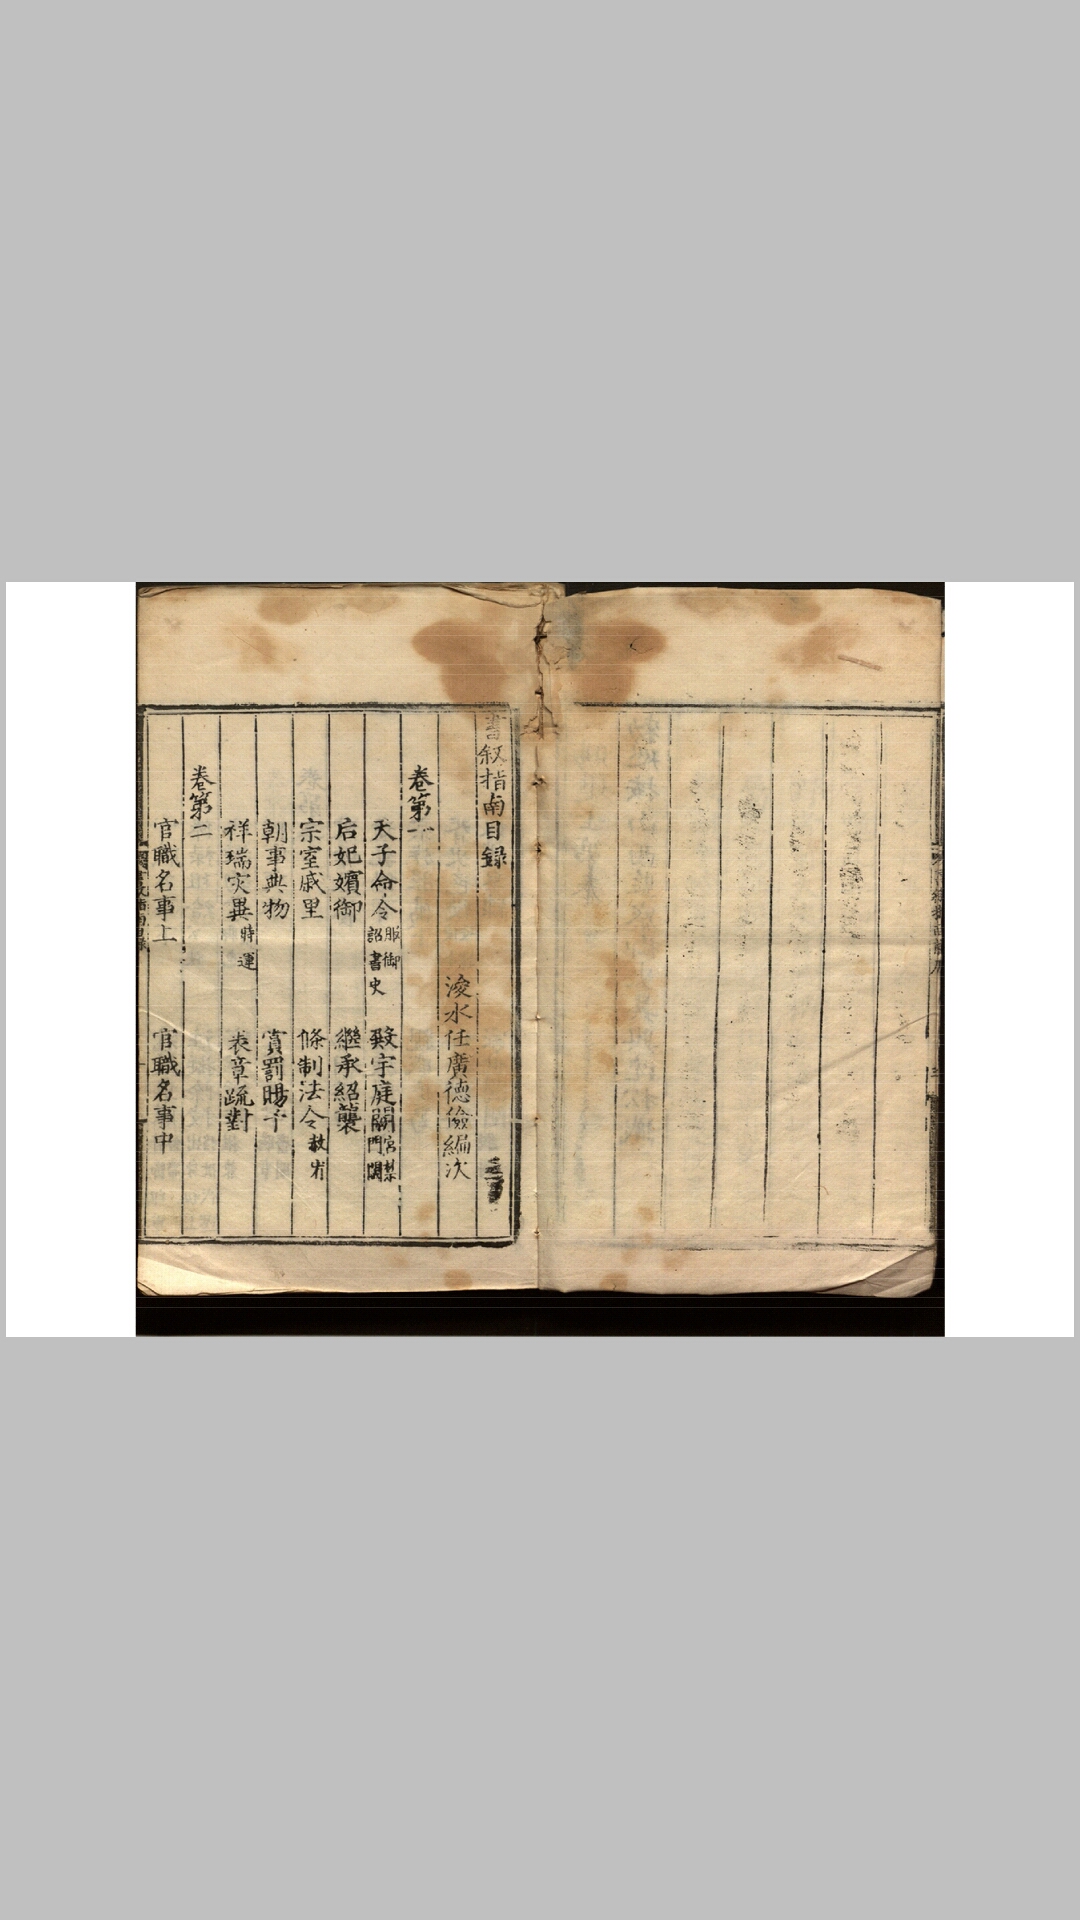 書叙指南目録
浚水任廣德儉編次
卷第一
天子命令 服御 詔書史 殿宇庭闕 宮禁 門闥
后妃嬪御 繼承紹襲
宗室戚里 條制法令 赦宥
朝事典物 賞罰賜予
祥瑞灾異 時運 表章疏對
卷第二
官職名事上 官職名事中